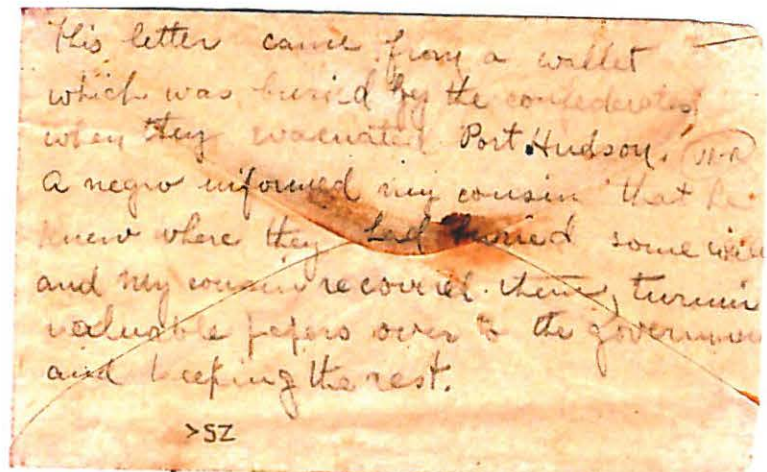 This letter came from a wallet
which was buried by the confederates
when they evacuated Port Hudson.
A negro informed my cousin that he
knew where they had buried some
and my cousin recovered them, turnin
valuable papers over to the governmen
and keeping the rest.
>SZ